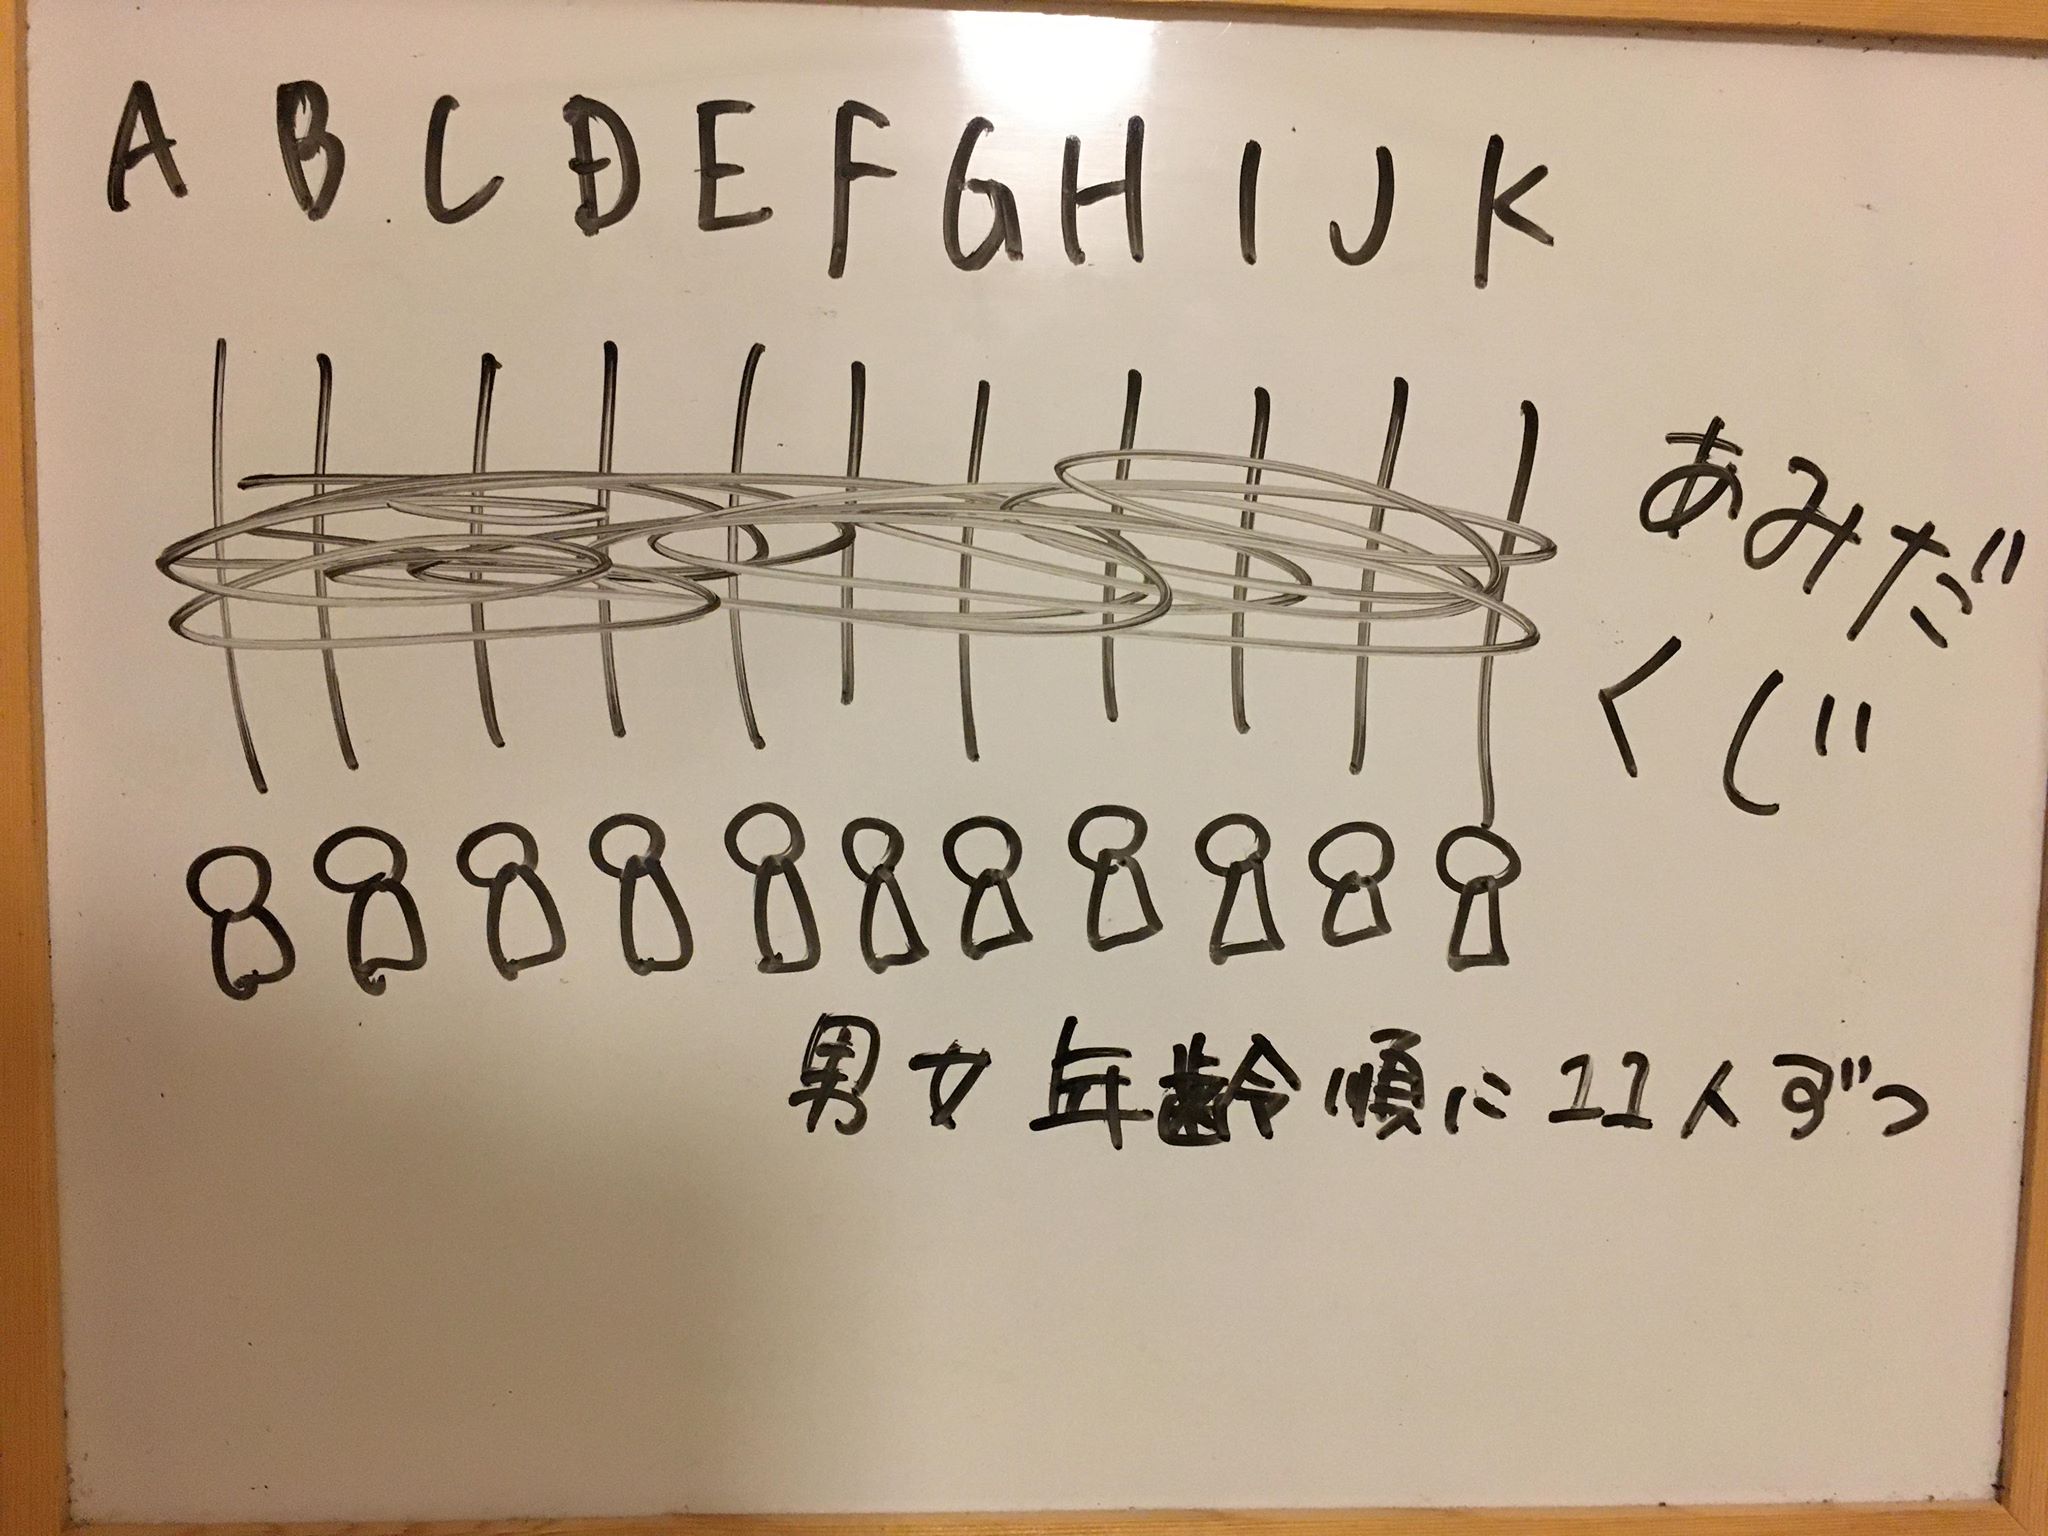 A B C D E F G H I J K
あみだ
くじ
男女年齢順に11人ずつ